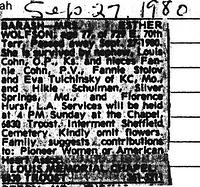 ah Sep 27 1980
BARASH—MRS. ESTHER
WOLFSON, age 77, of 220 E. 70th
She is survived by nieces, Louis
Cohn, O.P., Ks. and nieces Fan-
nie Cohn, P.V., Fannie Stolov
and Eva Tulchinsky of KC, Mo.
and Hikie Schulman, Silver
Springs Md., and Florence
Hurst, L.A. Services will be held
at 4 P.M. Sunday at the Chapel
6830 Troost. Interment Sheffield
Cemetery. Kindly omit flowers.
Family suggests contributions
to: Pioneer Women or American
LOUIS MEMORIAL CHAPEL
6830 TROOST